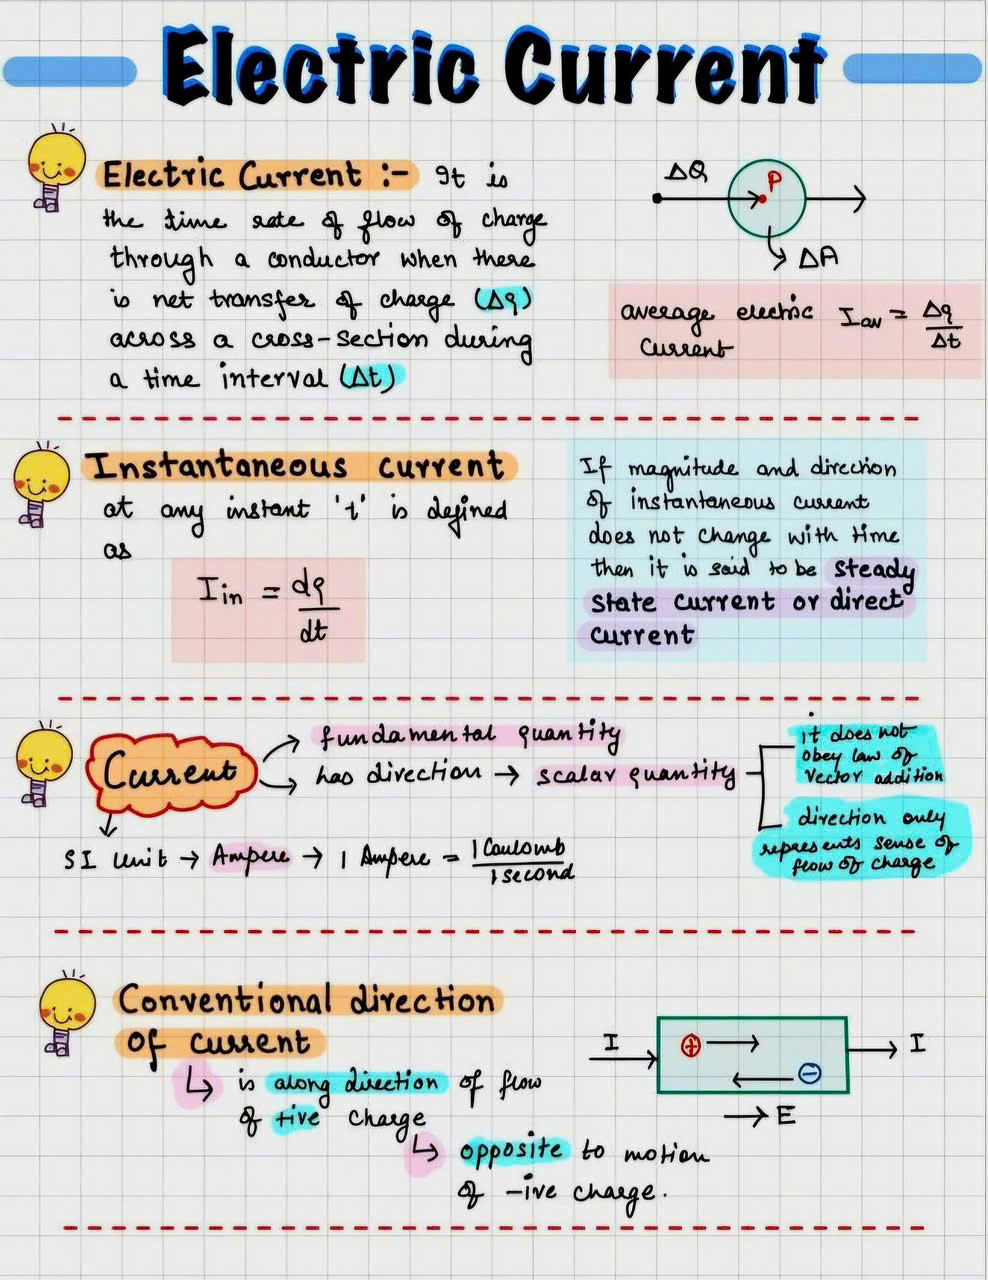 Electric Current
Electric Current :- It is
the time rate of flow of charge
through a conductor when there
is net transfer of charge (Δq)
across a cross-section during
a time interval (Δt)
ΔQ
P
ΔA
average electric
current
I_av = Δq/Δt
Instantaneous current
at any instant 't' is defined
as
I_in = dq/dt
If magnitude and direction
of instantaneous current
does not change with time
then it is said to be steady
state current or direct
current
Current
fundamental quantity
has direction → scalar quantity
it does not
obey law of
vector addition
direction only
represents sense of
flow of charge
SI Unit → Ampere → 1 Ampere = 1 Coulomb/1 second
Conventional direction
of current
is along direction of flow
of +ive charge
opposite to motion
of -ive charge.
I
+
-
I
→ E